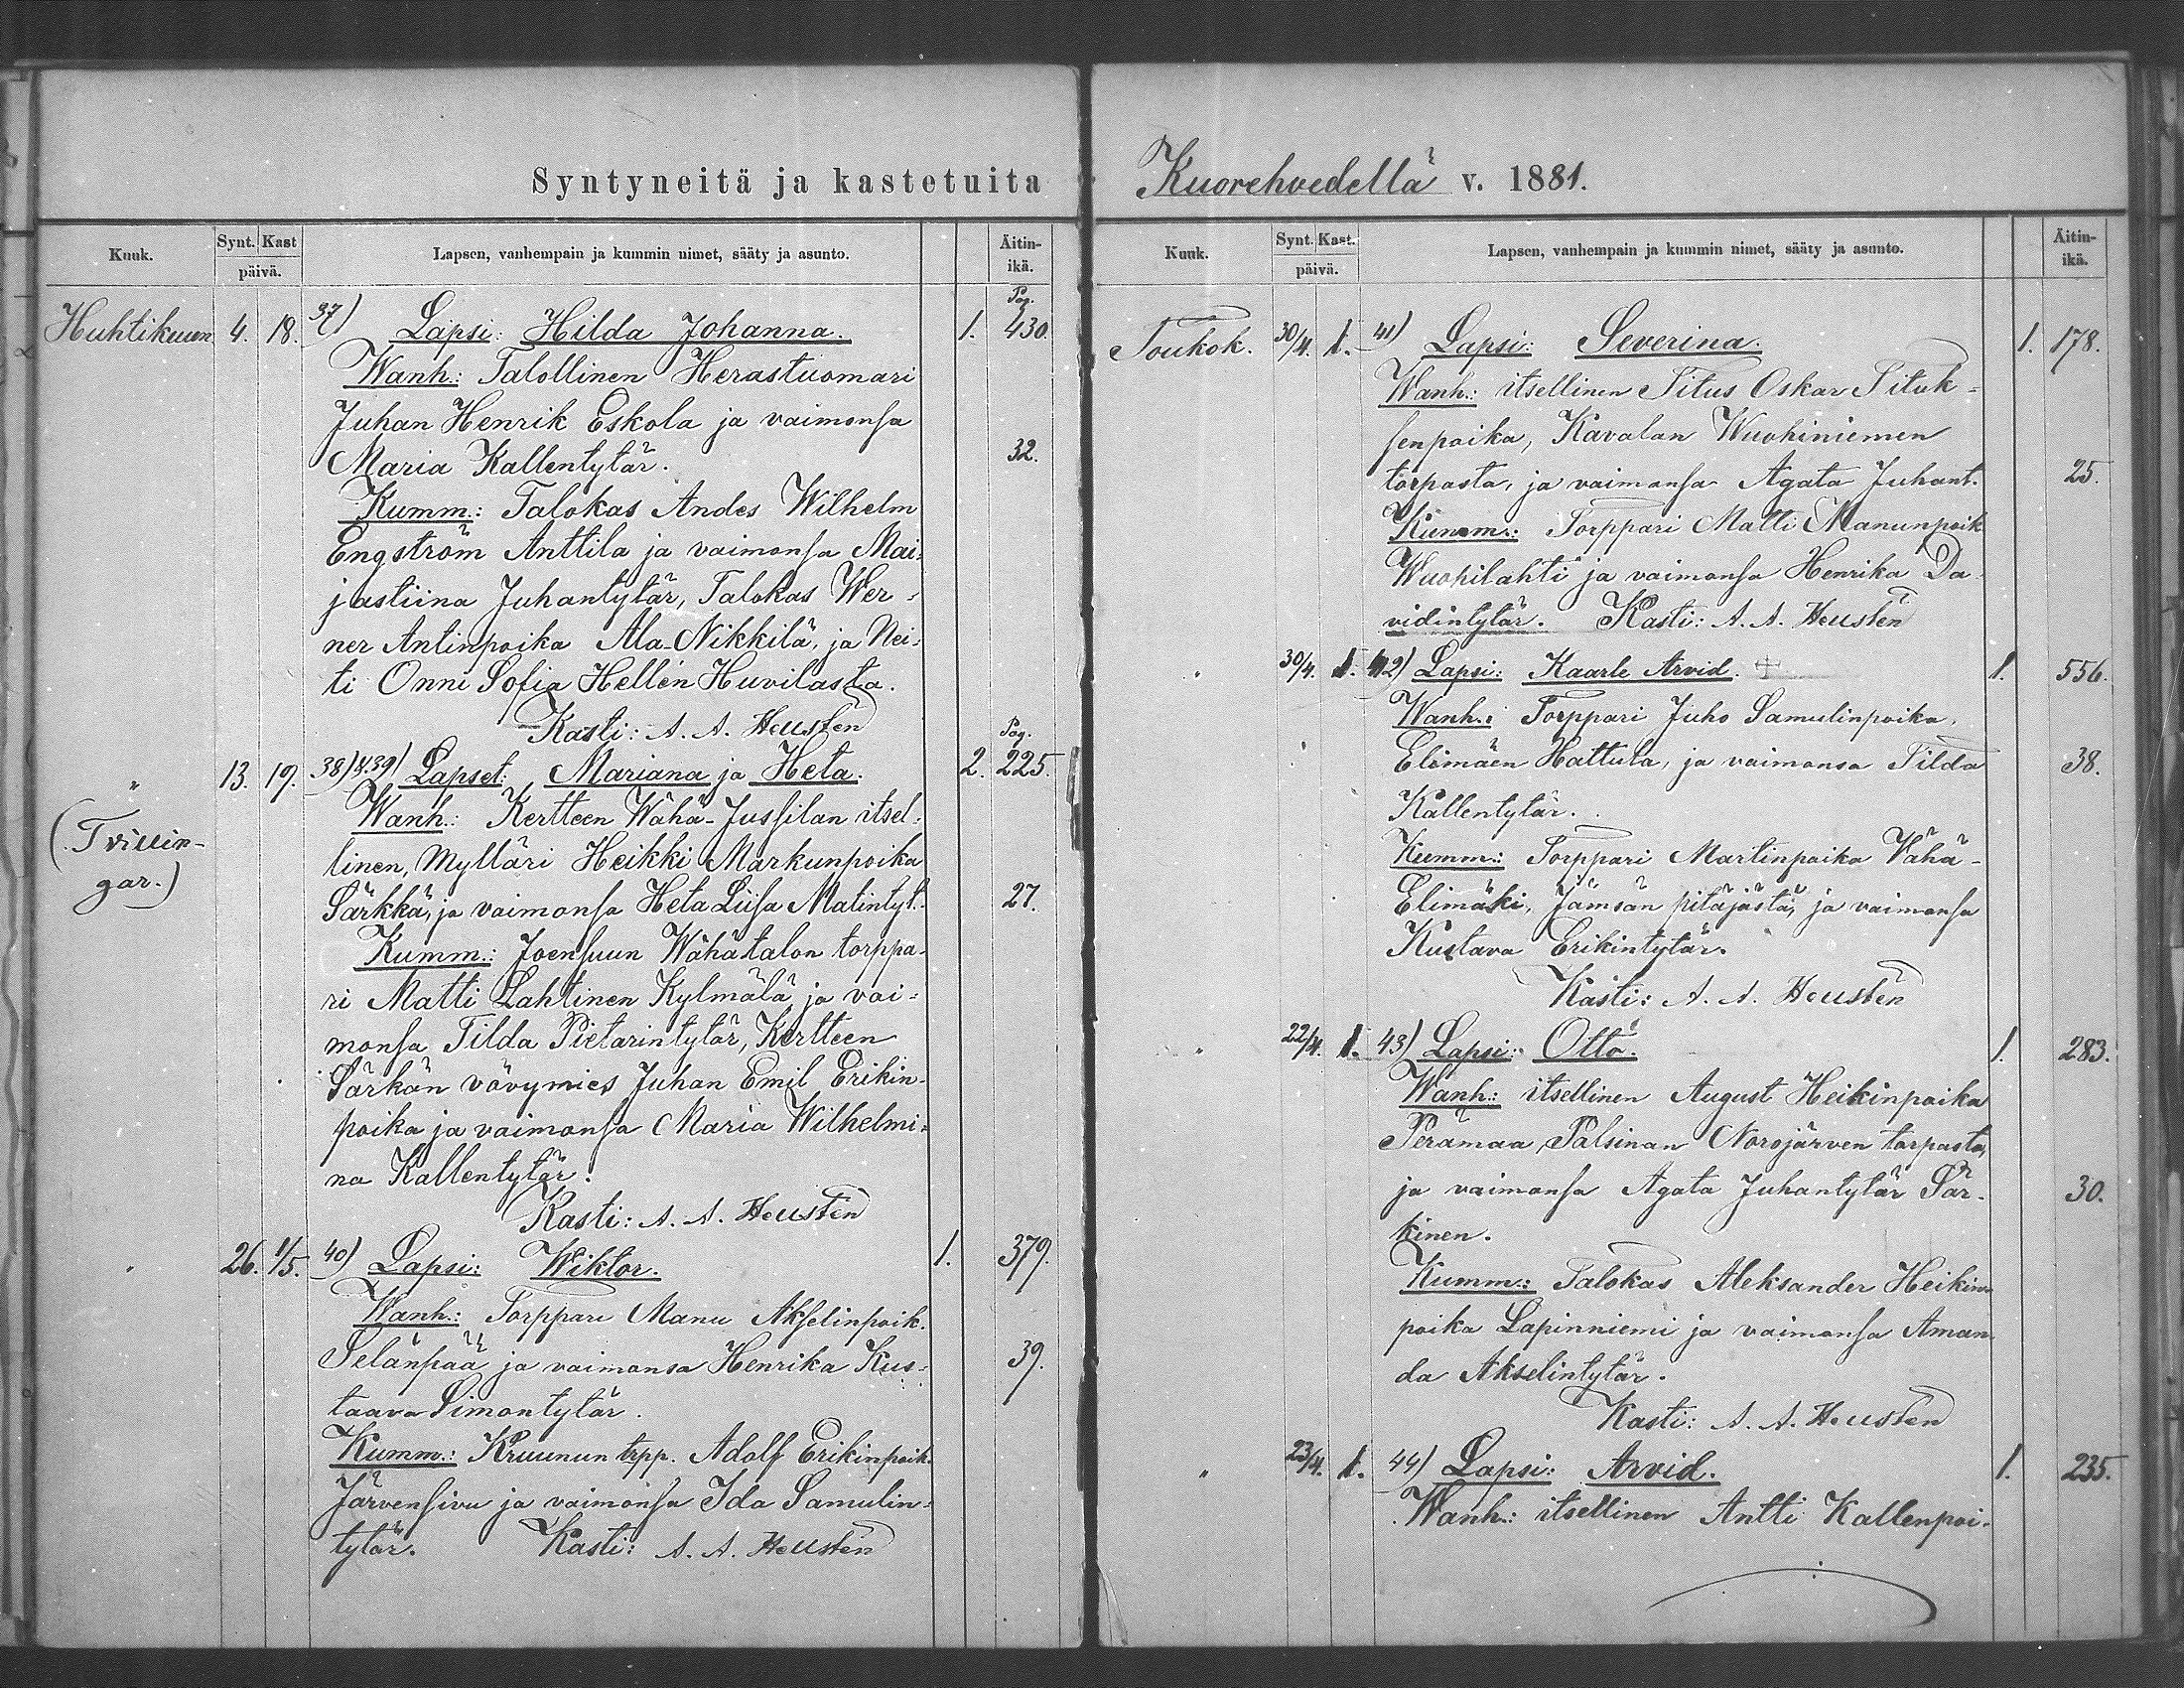 Syntyneitä ja kastetuita
Kuuk. Synt. Kast päivä. Lapsen, vanhempain ja kummin nimet, sääty ja asunto. Äitin-ikä.
Pag.
Huhtikuun 4. 18. 37) Lapsi: Hilda Johanna. 1. 430.
Wanh.: Talollinen Herastuomari
Juhan Henrik Eskola ja vaimonsa
Maria Kallentytär. 32.
Kumm.: Talokas Andes Wilhelm
Engström Anttila ja vaimonsa Mai-
jastiina Juhantytär, Talokas Wer-
ner Antinpoika Ala-Nikkilä, ja Nei-
ti Onni Sofia Hellén Huvilasta.
Kasti: A. A. Heusten
Pag.
" 13. 19. 38) & 39) Lapset: Mariana ja Heta. 2. 225.
(Tvillin-
gar.)
Wanh.: Kertteen Wähä-Jussilan itsel-
linen, Mylläri Heikki Markunpoika
Särkkä, ja vaimonsa Heta Liisa Matintyt. 27.
Kumm.: Joensuun Wähätalon torppa-
ri Matti Lahtinen Kylmälä, ja vai-
monsa Tilda Pietarintytär, Kertteen
Särkän vävymies Juhan Emil Erikin-
poika ja vaimonsa Maria Wilhelmi-
na Kallentytär.
Kasti: A. A. Heusten
" 26. 1/5. 40) Lapsi: Wiktor. 1. 379.
Wanh.: Torppari Manu Akselinpoik.
Selänpää ja vaimonsa Henrika Kus-
taava Simontytär. 39.
Kumm.: Kruunun trpp. Adolf Erikinpoik.
Järvensivu ja vaimonsa Ida Samulin-
tytär. Kasti: A. A. Heusten
Kuorehvedellä v. 1881.
Kuuk. Synt. Kast. päivä. Lapsen, vanhempain ja kummin nimet, sääty ja asunto. Äitin-ikä.
Toukok. 30/4. 1. 41) Lapsi: Severina. 1. 178.
Wanh.: itsellinen Titus Oskar Tituk-
senpoika, Kavalan Wuohiniemen
torpasta, ja vaimonsa Agata Juhant. 25.
Kumm.: Torppari Matti Manunpoik
Wuohilahti ja vaimonsa Henrika Da-
vidintytär. Kasti: A. A. Heusten
" 30/4. 1. 42) Lapsi: Kaarle Arvid. + 1. 556.
Wanh.: Torppari Juho Samulinpoika,
Elimäen Hattula, ja vaimonsa Tilda 38.
Kallentytär.
Kumm.: Torppari Martinpoika Vähä-
Elimäki, Jämsän pitäjästä, ja vaimonsa
Kustava Erikintytär.
Kasti: A. A. Heusten
" 22/4. 1. 43) Lapsi: Otto. 1. 283.
Wanh.: itsellinen August Heikinpoika
Perämaa, Palsinan Norojärven torpasta,
ja vaimonsa Agata Juhantytär Sär- 30.
kinen.
Kumm.: Talokas Aleksander Heikin-
poika Lapinniemi ja vaimonsa Aman-
da Akselintytär.
Kasti: A. A. Heusten
" 23/4. 1. 44) Lapsi: Arvid. 1. 235.
Wanh.: itsellinen Antti Kallenpoi-